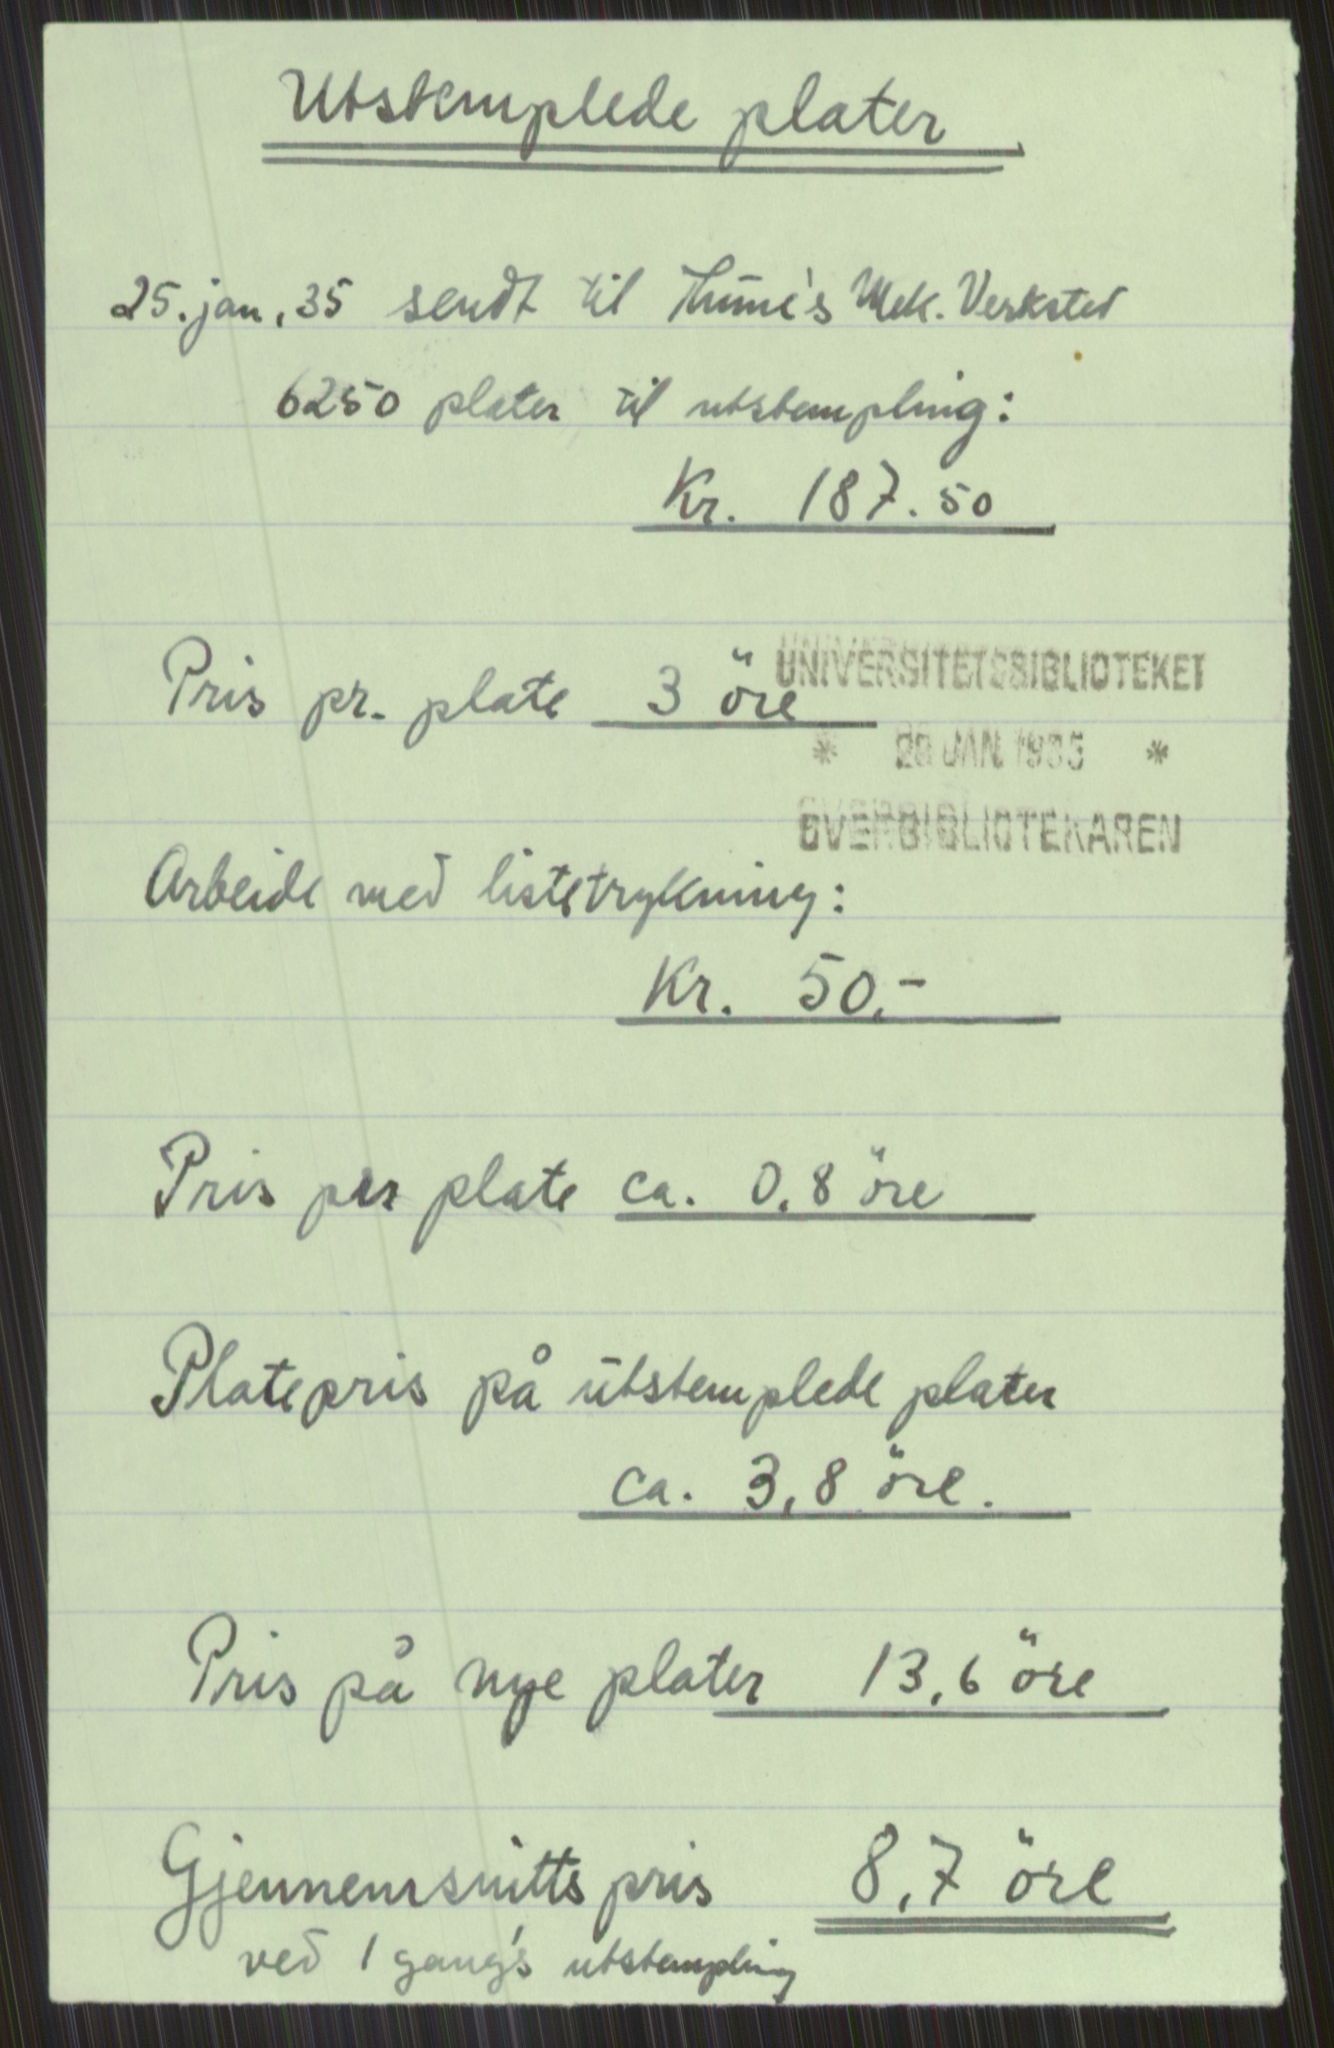 Utstemplede plater
25. jan. 35 sendt til Thune's Mek. Verksted
6250 plater til utstempling:
Kr. 187.50
Pris pr. plate 3 öre
UNIVERSITETSBIBLIOTEKET
JAN. 1935
OVERBIBLIOTEKAREN
Arbeide med listetrykning:
Kr. 50,-
Pris per plate ca. 0,8 öre
Platepris på utstemplede plater
ca. 3,8 öre.
Pris på nye plater 13,6 öre
Gjennemsnitts pris 8,7 öre
ved 1 gang's utstempling